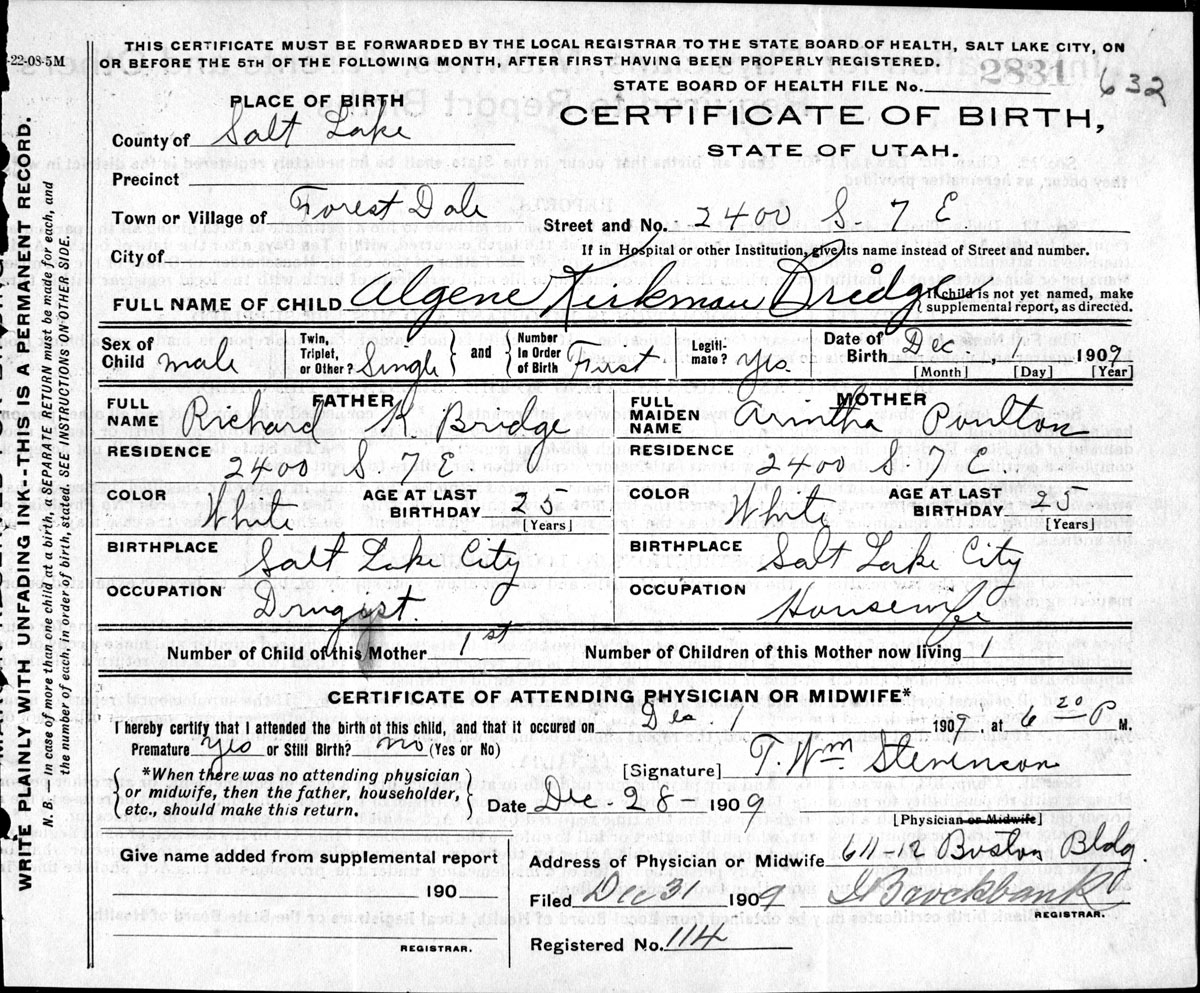 22-08-5M
THIS CERTIFICATE MUST BE FORWARDED BY THE LOCAL REGISTRAR TO THE STATE BOARD OF HEALTH, SALT LAKE CITY, ON
OR BEFORE THE 5TH OF THE FOLLOWING MONTH, AFTER FIRST HAVING BEEN PROPERLY REGISTERED.
2831
632
STATE BOARD OF HEALTH FILE No.
CERTIFICATE OF BIRTH,
STATE OF UTAH.
PLACE OF BIRTH
County of Salt Lake
Precinct
Town or Village of Forest Dale
Street and No. 2400 S. 7 E
City of
If in Hospital or other Institution, give its name instead of Street and number.
FULL NAME OF CHILD Algene Kirkman Bridge
{If child is not yet named, make
supplemental report, as directed.
Sex of Child male
Twin, Triplet, or Other? Single } and { Number In Order of Birth First
Legiti-mate? Yes.
Date of Birth Dec 1 1909
[Month] [Day] [Year]
FATHER
FULL NAME Richard K. Bridge
RESIDENCE 2400 S 7 E
COLOR White AGE AT LAST BIRTHDAY 25 [Years]
BIRTHPLACE Salt Lake City
OCCUPATION Drugyst.
MOTHER
FULL MAIDEN NAME Arintha Poulton
RESIDENCE 2400 S 7 E
COLOR White AGE AT LAST BIRTHDAY 25 [Years]
BIRTHPLACE Salt Lake City
OCCUPATION Housewife
Number of Child of this Mother 1st Number of Children of this Mother now living 1
CERTIFICATE OF ATTENDING PHYSICIAN OR MIDWIFE*
I hereby certify that I attended the birth of this child, and that it occured on Dec. 1 1909, at 6 20 P M.
Premature yes or Still Birth? no (Yes or No)
*When there was no attending physician
or midwife, then the father, householder,
etc. should make this return.
[Signature] T. Wm Stevenson
Date Dec-28 1909
[Physician or Midwife]
Give name added from supplemental report
190
REGISTRAR.
Address of Physician or Midwife 611-12 Boston Bldg.
Filed Dec 31 1909 Brockbank
REGISTRAR.
Registered No. 114
WRITE PLAINLY WITH UNFADING INK--THIS IS A PERMANENT RECORD.
N. B. — In case of more than one child at a birth, a SEPARATE RETURN must be made for each, and
the number of each, in order of birth, stated. SEE INSTRUCTIONS ON OTHER SIDE.